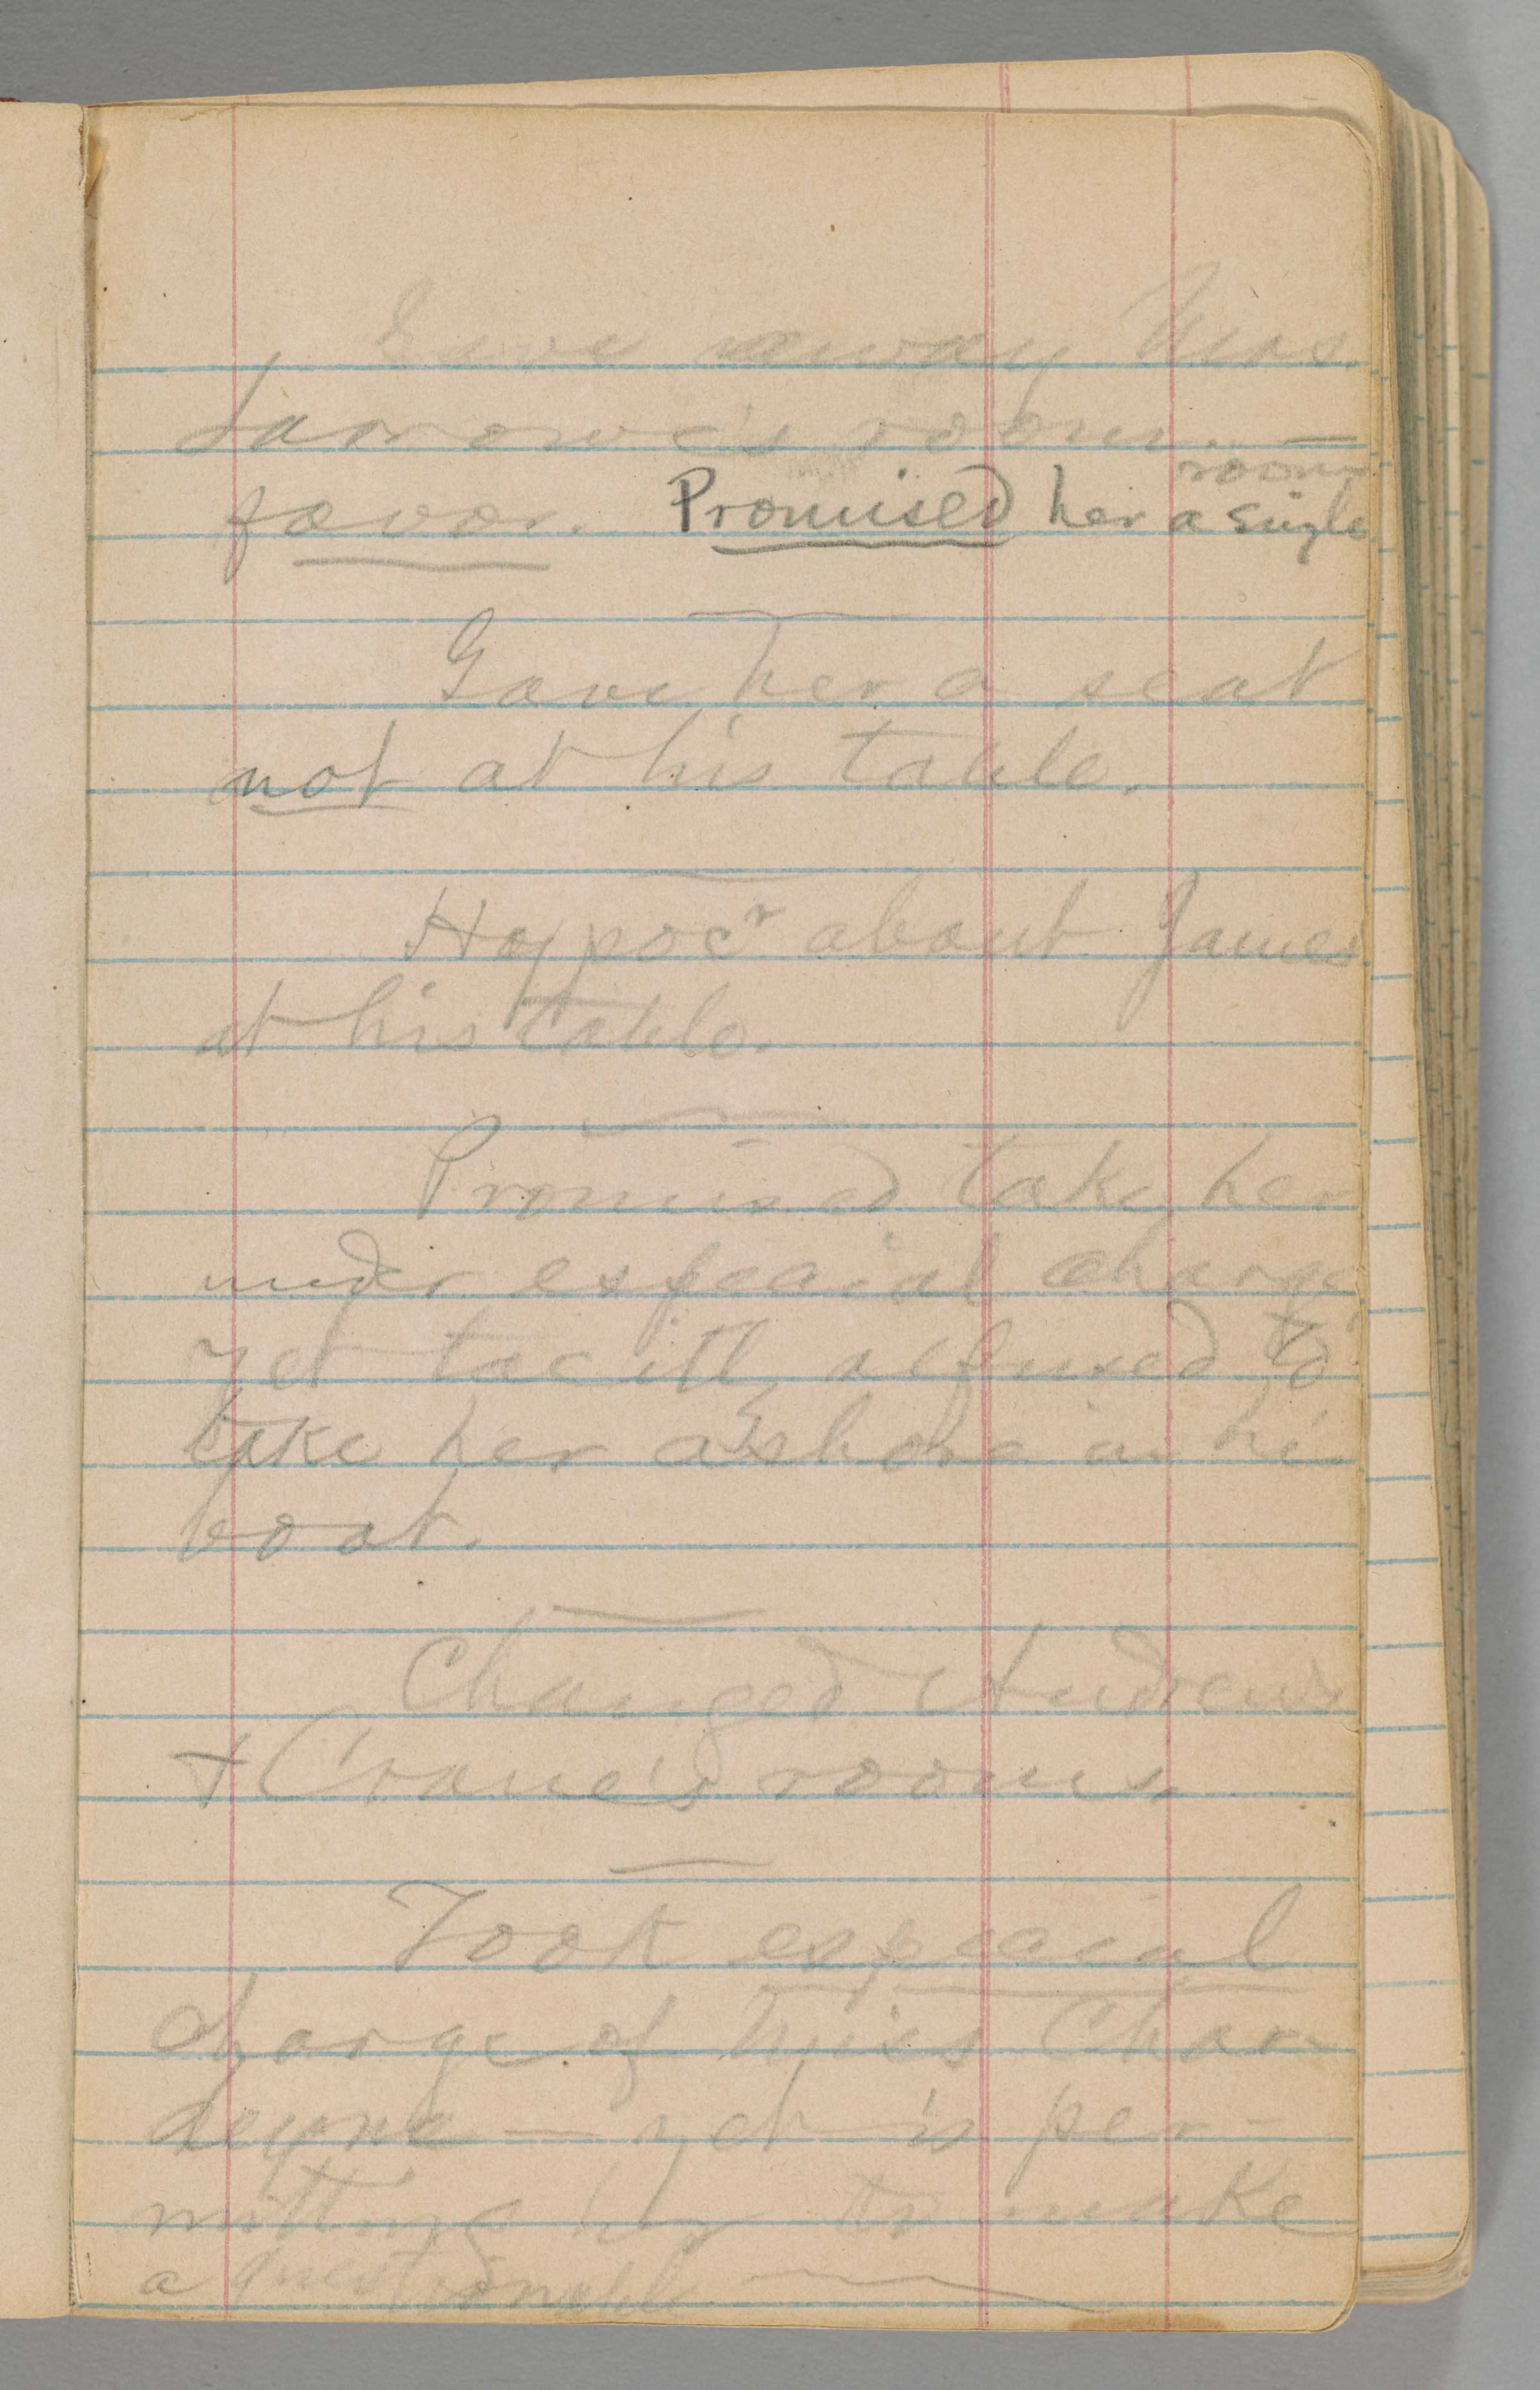 Gave away Miss
Larrowe's room. —
favor. Promised her a single
room
Gave her a seat
not at his table.
Hyppocr about James
at his table.
Promised take her
under especial charge
yet tacitly refused to
take her ashore in his
boat.
Changed Andrews
+ Crane's rooms.
Took especial
charge of Miss Char-
deyne — yet is per-
mitting her to make
a questionable